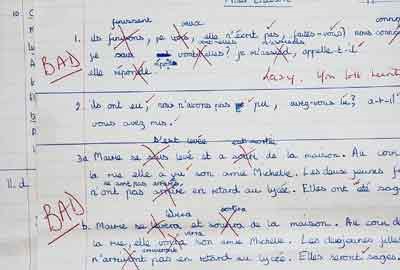 finissent veux
1. ils finirons, je vois, elle n'écrit pas, faites-vous? nous conn
sont-elles m'assieds
je sais vont-elles? je m'assied, appelle-t-il
BAD
elle réponde
Lazy. You
2. ils ont eu, nous n'avons pas pu, avez-vous lu? a-t-il
vous avez mis.
s'est levée est sortie
3a Marie se suis levé et a sorti de la maison. Au cour
la rue elle a vu son amie Michelle. Les deux jeunes f
11.d. ne sont pas arrivés
n'ont pas arrivé en retard au lycée. Elles ont été sag
BAD
lèvera sortira
b. Marie se levera et de la maison. Au cour d
verra
la rue, elle voira son amie Michelle. Les deux jeunes filles
n'arriveront pas en retard au lycée. Elles seront sages.